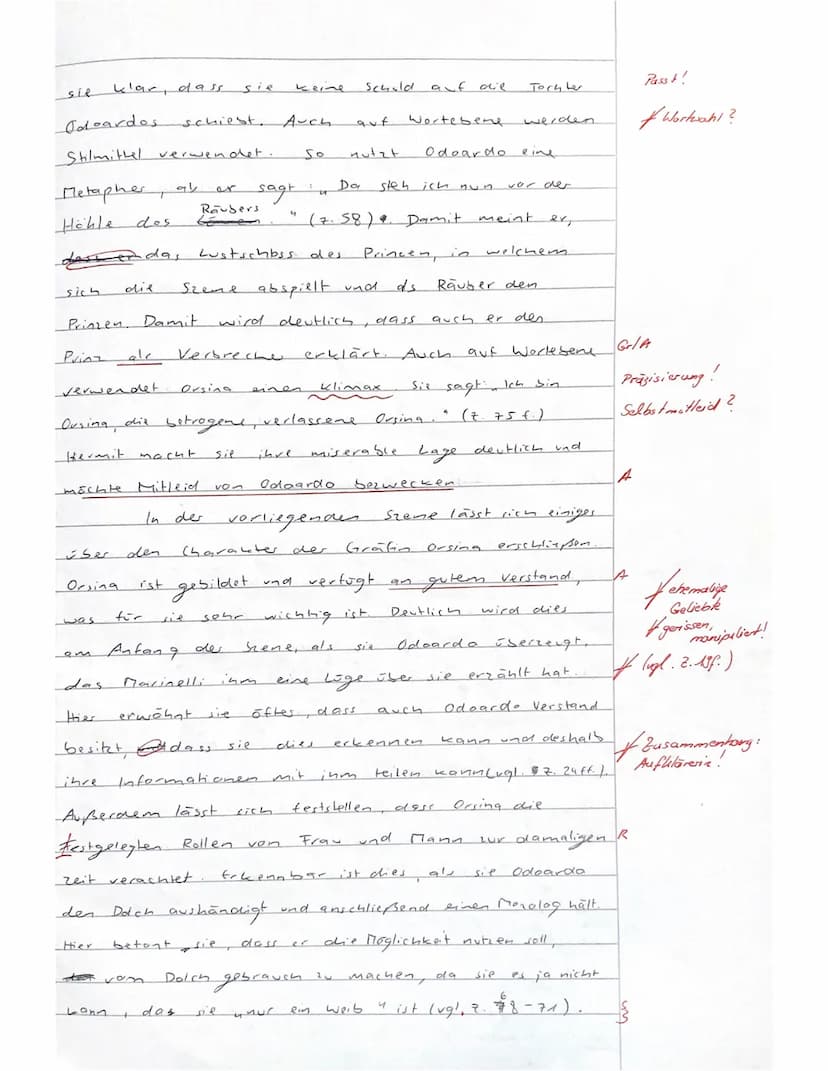 sie klar, dass sie keine Schuld auf die Tochter
Passt!
Odoardos schiebt. Auch auf Wortebene werden
Wortwahl?
Stilmittel verwendet. So nutzt Odoardo eine
Metapher, als er sagt: „Da steh ich nun vor der
Höhle des Räubers." (Z. 58). Damit meint er,
das Lustschloss des Princen, in welchem
sich die Szene abspielt und als Räuber den
Prinzen. Damit wird deutlich, dass auch er den
Prinz als Verbrecher erklärt. Auch auf Wortebene
Gr/A
verwendet Orsina einen Klimax. Sie sagt „Ich bin
Präzisierung!
Orsina, die betrogene, verlassene Orsina." (Z. 75 f.)
Selbstmitleid?
Hiermit macht sie ihre miserable Lage deutlich und
möchte Mitleid von Odoardo bezwecken
A
In der vorliegenden Szene lässt sich einiges
über den Charakter der Gräfin Orsina erschließen.
Orsina ist gebildet und verfügt an gutem Verstand,
A
ehemalige
Geliebte
was für sie sehr wichtig ist. Deutlich wird dies
gerissen,
manipuliert!
am Anfang der Szene, als sie Odoardo überzeugt,
das Marinelli ihm eine Lüge über sie erzählt hat.
(vgl. Z. 19f.)
Hier erwähnt sie öfter, dass auch Odoardo Verstand
besitzt, dass sie dies erkennen kann und deshalb
Zusammenhang:
ihre Informationen mit ihm teilen kann (vgl. Z. 24 ff.).
Aufklärerin!
Außerdem lässt sich feststellen, dass Orsina die
festgelegten Rollen von Frau und Mann zur damaligen
R
Zeit verachtet. Erkennbar ist dies, als sie Odoardo
den Dolch aushändigt und anschließend einen Monolog hält.
Hier betont sie, dass er die Möglichkeit nutzen soll,
vom Dolch gebrauch zu machen, da sie es ja nicht
kann, das sie „nur ein Weib" ist (vgl. Z. 68-71).